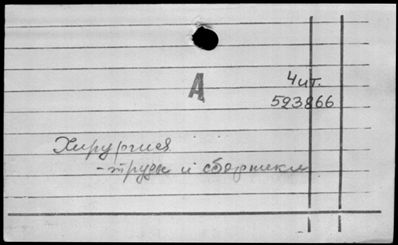 А
Чит.
523866
Хирургия
- труды и сборники